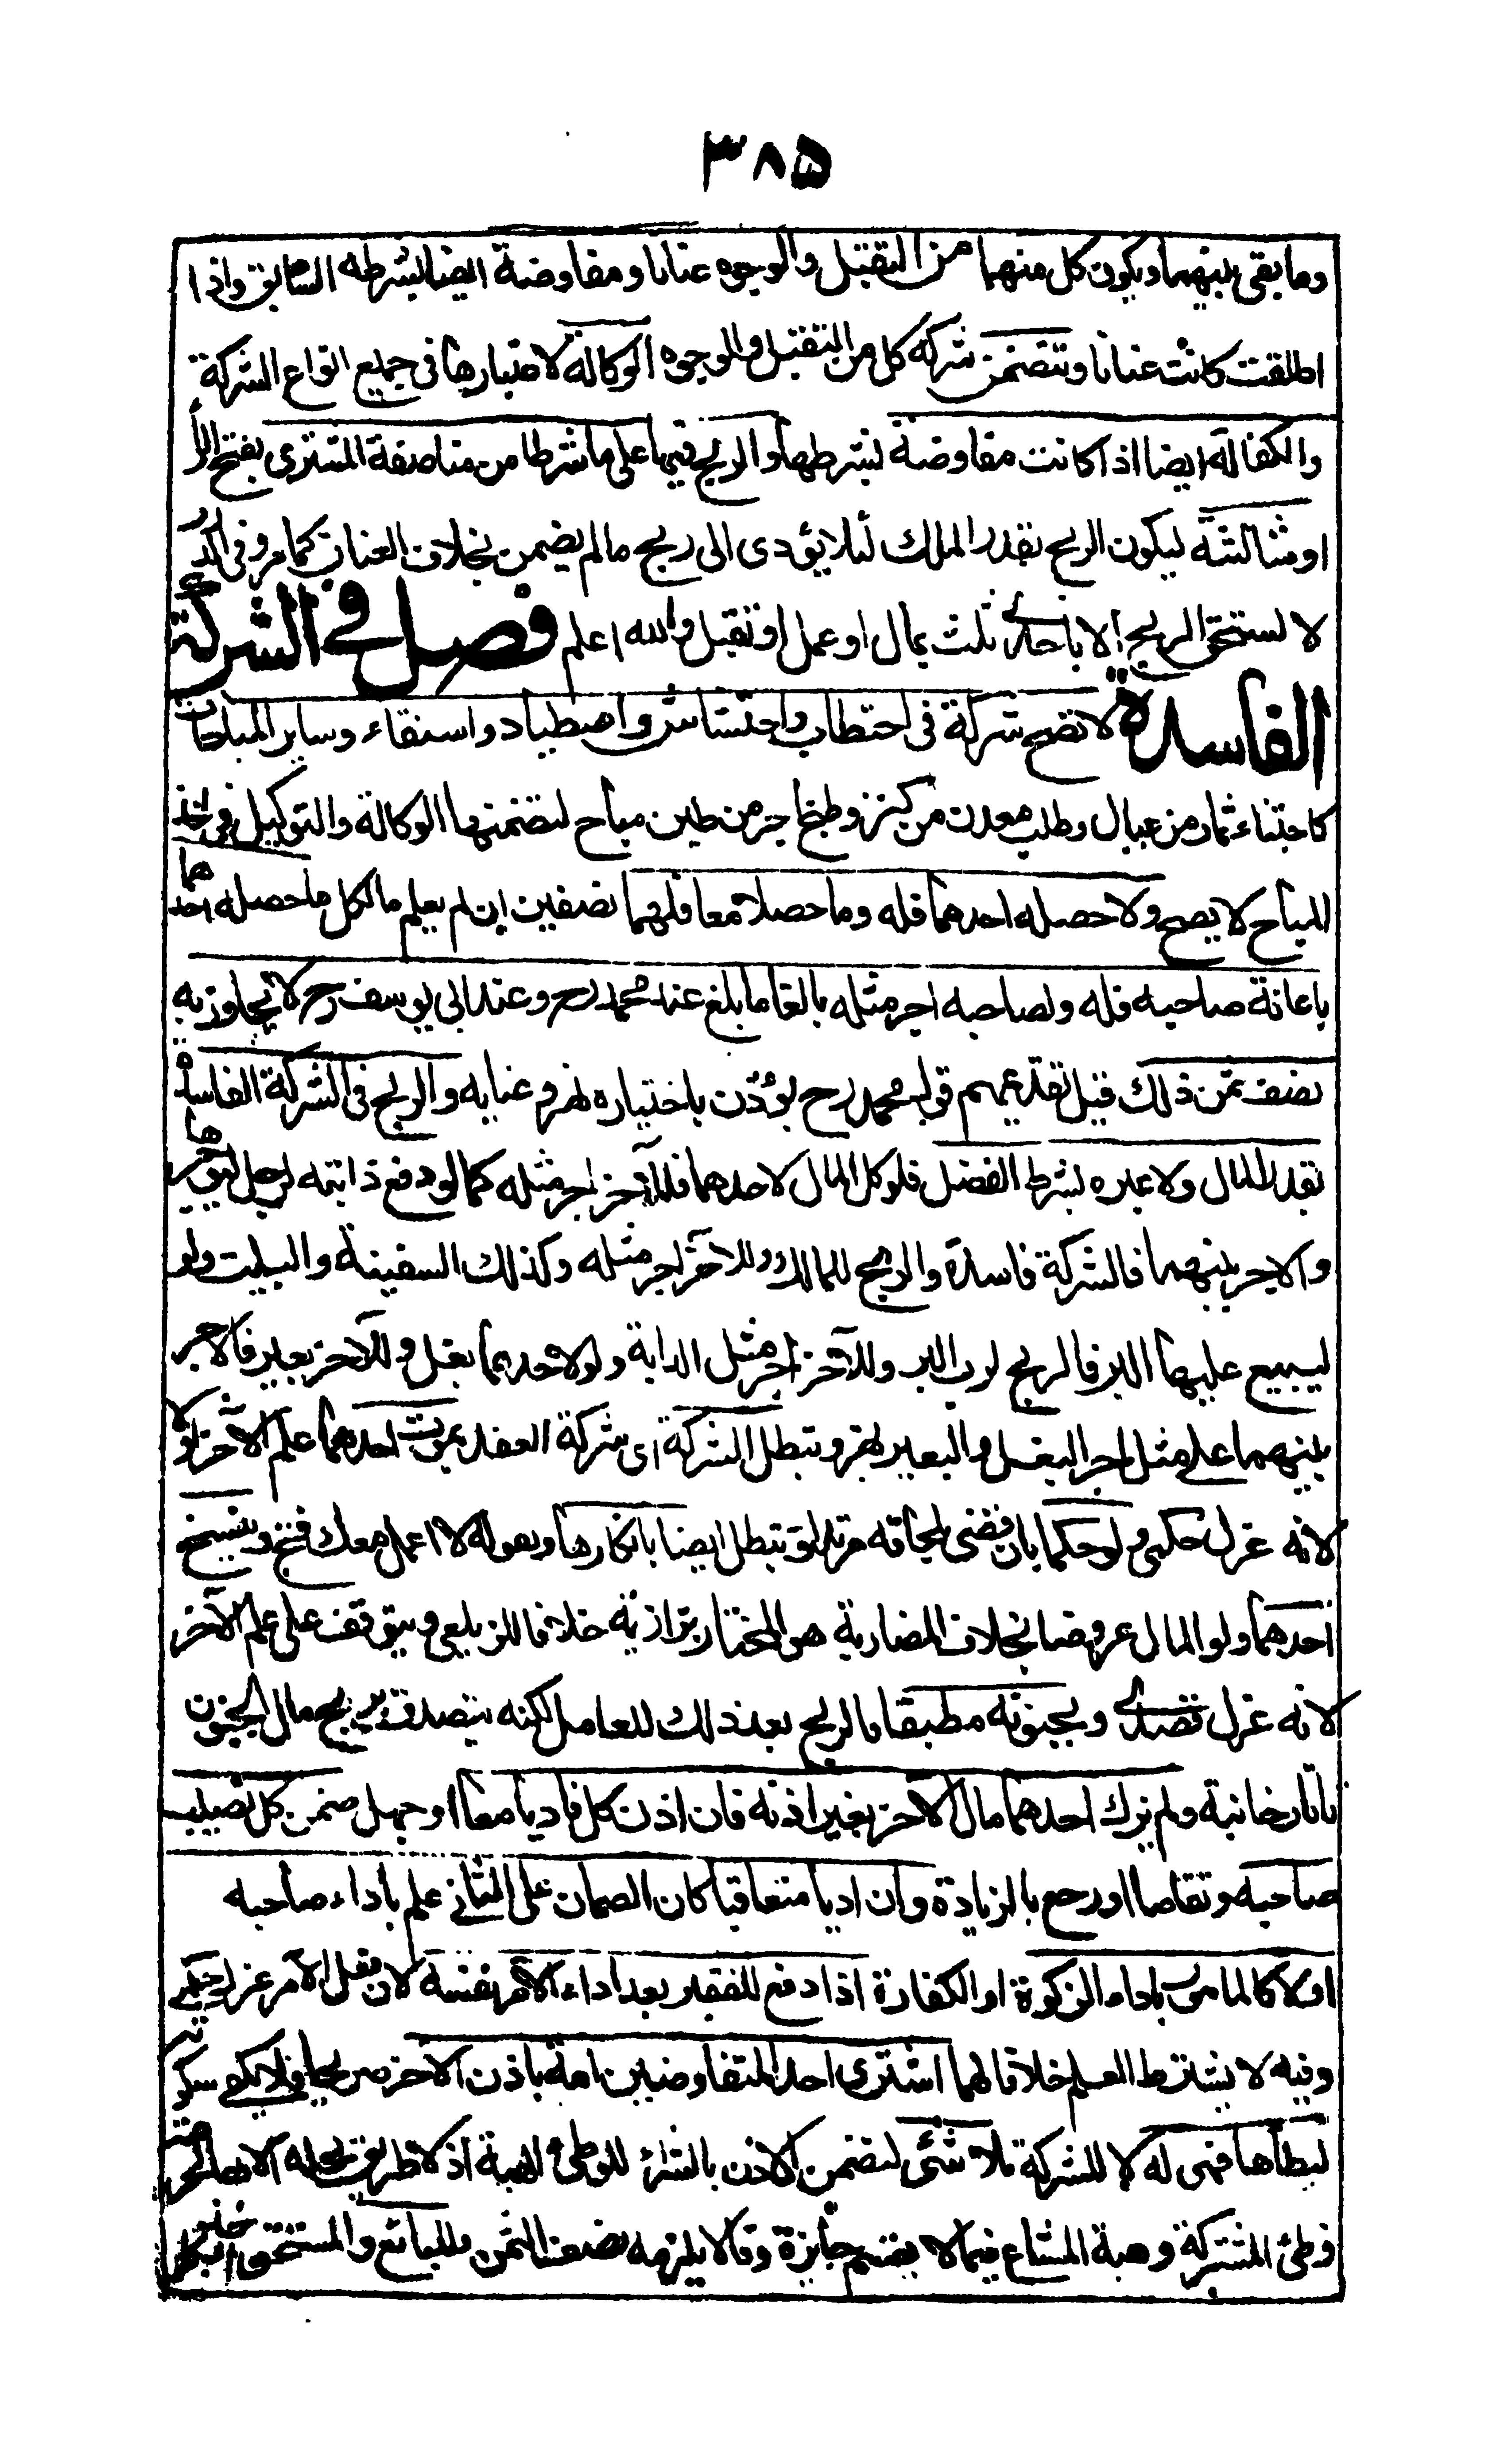 ٣٨٥
وما بقى بينهما ويكون كل منهما من التقبل والوجوه عنانا ومفاوضة ايضا بشرطه السابق واذا
اطلقت كانت عنانا وتتضمن شركة كل من التقبل والوجوه الوكالة لاعتبارها فى جميع انواع الشركة
والكفالة ايضا اذا كانت مفاوضة بشرطها والربح فيها على ما شرطا من مناصفة المشترى بفتح الرا
او مثالثة ليكون الربح بقدر الملك لئلا يؤدى الى ربح مالم يضمن بخلاف العنان كما مر وفى الدرر
لا يستحق الربح الا باحدى ثلث بمال او عمل او تقبل والله اعلم فصل فى الشركة
الفاسدة لا تصح شركة فى احتطاب واحتشاش واصطياد واستقاء وساير المباحات
كاجتناء ثمار من جبال وطلب معدن من كنز وطبخ اجر من طين مباح لتضمنها الوكالة والتوكيل فى اخذ
المباح لا يصح ولا حصله احدهما فله وما حصلا معا فلهما نصفين ان لم يعلم ما لكل ما حصله احدهما
باعانة صاحبه فله ولصاحبه اجر مثله بالغا ما بلغ عند محمد رح وعند ابى يوسف رح لا يجاوز به
نصف ثمن ذلك قيل تقديمهم قول محمد رح يؤذن باختياره نهر وعنايه والربح فى الشركة الفاسدة
بقدر المال ولا عبره بشرط الفضل فلو كل المال لاحدهما فللآخر اجر مثله كما لو دفع دابته لرجل ليؤجرها
والاجر بينهما فالشركة فاسدة والربح للمالك وللآخر اجر مثله وكذلك السفينة والبيت ولو
ليبيع عليها البر فالربح لرب البر وللآخر اجر مثل الدابة ولو لاحدهما بغل وللآخر بعير فالاجر
بينهما على مثل اجر البغل والبعير نهر وتبطل الشركة اى شركة العقد بموت احدهما علم الآخر اولا
لانه عزل حكمى ولو حكما بان قضى بلحاقه مرتدا وتبطل ايضا بانكارها وبقوله لا اعمل معك فتح وبفسخ
احدهما ولو المال عروضا بخلاف المضاربة هو المختار بزازية خلافا للزيلعى ويتوقف على علم الآخر
لانه عزل قصدى وبجنونه مطبقا فالربح بعد ذلك للعامل لكنه يتصدق بربح مال المجنون
تاتارخانية ولم يزك احدهما مال الآخر بغير اذنه فان اذن كل فاديا معا او جهل ضمن كل نصيب
صاحبه وتقاصا او رجع بالزيادة وان اديا متعاقبا كان الضمان على الثانى علم باداء صاحبه
اولا كالمامور باداء الزكوة او الكفارة اذا دفع للفقير بعد اداء الآمر نفسه لان فعل الآمر عزل حكمى
وفيه لا يشترط العلم خلافا لهما اشترى احد المتفاوضين امة باذن الآخر صريحا فلا يكفى سكوته
ليطأها فهى له لا للشركة بلا شئى لتضمن الاذن بالشراء للوطئ الهبة اذ لا طريق لحله الا بها لحرمة
وطئ المشتركة وهبة المشاع فيما لا يقسم جائزة وقالا يلزمه نصف الثمن وللبائع والمستحق اخذ كل